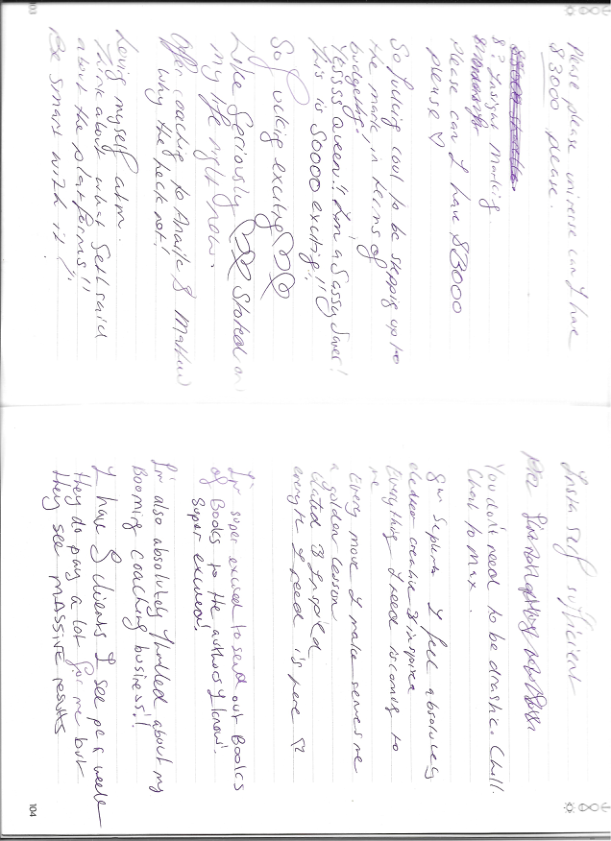 103
Please please universe can I have
$3000 please.
Please can I have $3000
please ♡
So fucking cool to be stepping up to
the mark in terms of
budgeting!
Yesss Queen!! I'm a Sassy Saver!
This is soooo exciting!!
So fucking exciting
Like Seriously Stoked on
my life right now.
Offer coaching to &
why the heck not!
Loving myself atm.
Think about what Seth said
about the platforms!!
Be smart with it
self sufficient
You don't need to be drastic. Chill.
Chat to Max.
I feel absolutely
creative & inspired
Everything I need is coming to
me
Every move I make serves me
a golden lesson
Elated & Inspired
everything I need is here
I'm super excited to send out Books
of Books to the authors I know!
Super excited!
I'm also absolutely thrilled about my
Booming coaching business!!
I have 8 clients I see per week
they do pay a lot for me but
they see MASSIVE results
104